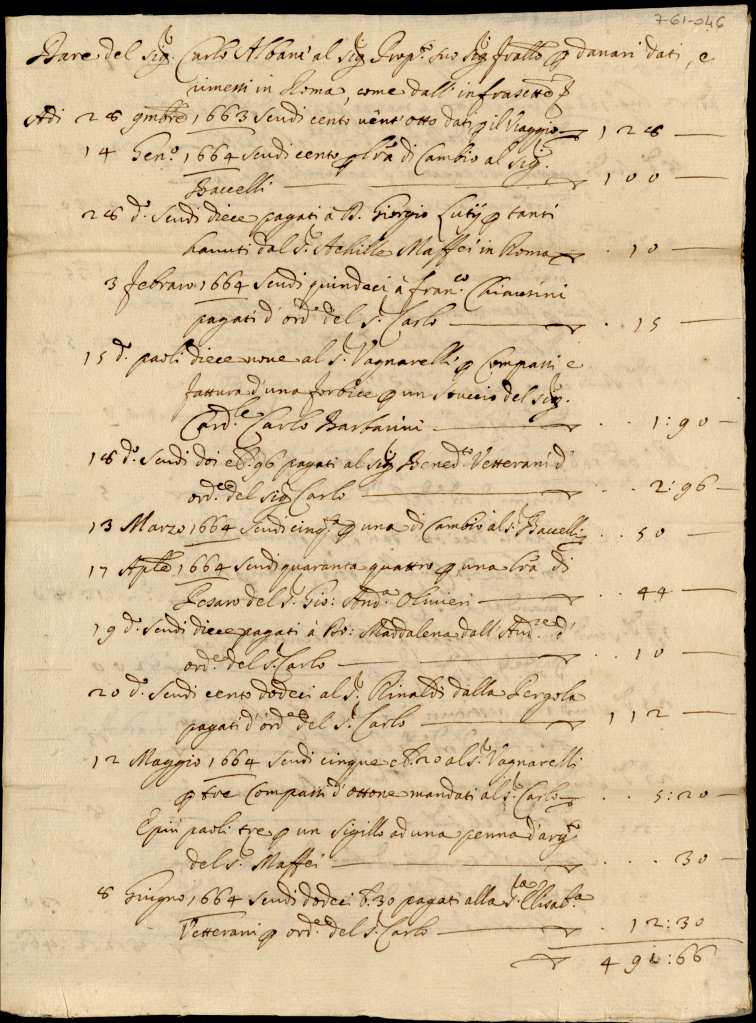 761-046
Dare del Sig.r Carlo Albani al Sig.r Prop.o suo Sig.r frallo p danari dati, e
rimessi in Roma, come dall' infrascette
Adi 28 9mbre 1663 Scudi cento vent'otto dati p il Viaggio 128
14 Gen.o 1664 Scudi cento p lra di Cambio al Sig.r
Baccelli 100
28 d.o Scudi diece pagati à Giorgio Lutij p tanti
havuti dal S.r Achille Maffei in Roma 10
3 febraro 1664 Scudi quindeci à fran.co Chiaurini
pagati d'ord.e del S.r Carlo 15
15 d.o paoli diece nove al S.r Vagnarelli p Compassi e
fattura d'una forbice p un stuccio del Sig.r
Card.le Carlo Barbarini 1:90
18 d.o Scudi doi e b. 96 pagati al Sig.r Bened.to Vetterani d'
ord.e del Sig.r Carlo 2:96
13 Marzo 1664 Scudi cinq.ta p una di Cambio al S.r Baccelli 50
17 Aple 1664 Scudi quaranta quattro p una lra di
Pesaro del S.r Gio: And.a Olivieri 44
19 d.o Scudi diece pagati à Maddalena dall' And.e d'
ord.e del S.r Carlo 10
20 d.o Scudi cento dodeci al S.r Rinaldi dalla Pergola
pagati d'ord.e del S.r Carlo 112
12 Maggio 1664 Scudi cinque e b. 20 al S.r Vagnarelli
p tre Compassi d'ottone mandati al S.r Carlo 5:20
E più paoli tre p un sigillo ad una penna d'arg.to
del S.r Maffei 30
8 Giugno 1664 Scudi dodeci b. 30 pagati alla S.ra Elisab.a
Vetterani p ord.e del S.r Carlo 12:30
491:66